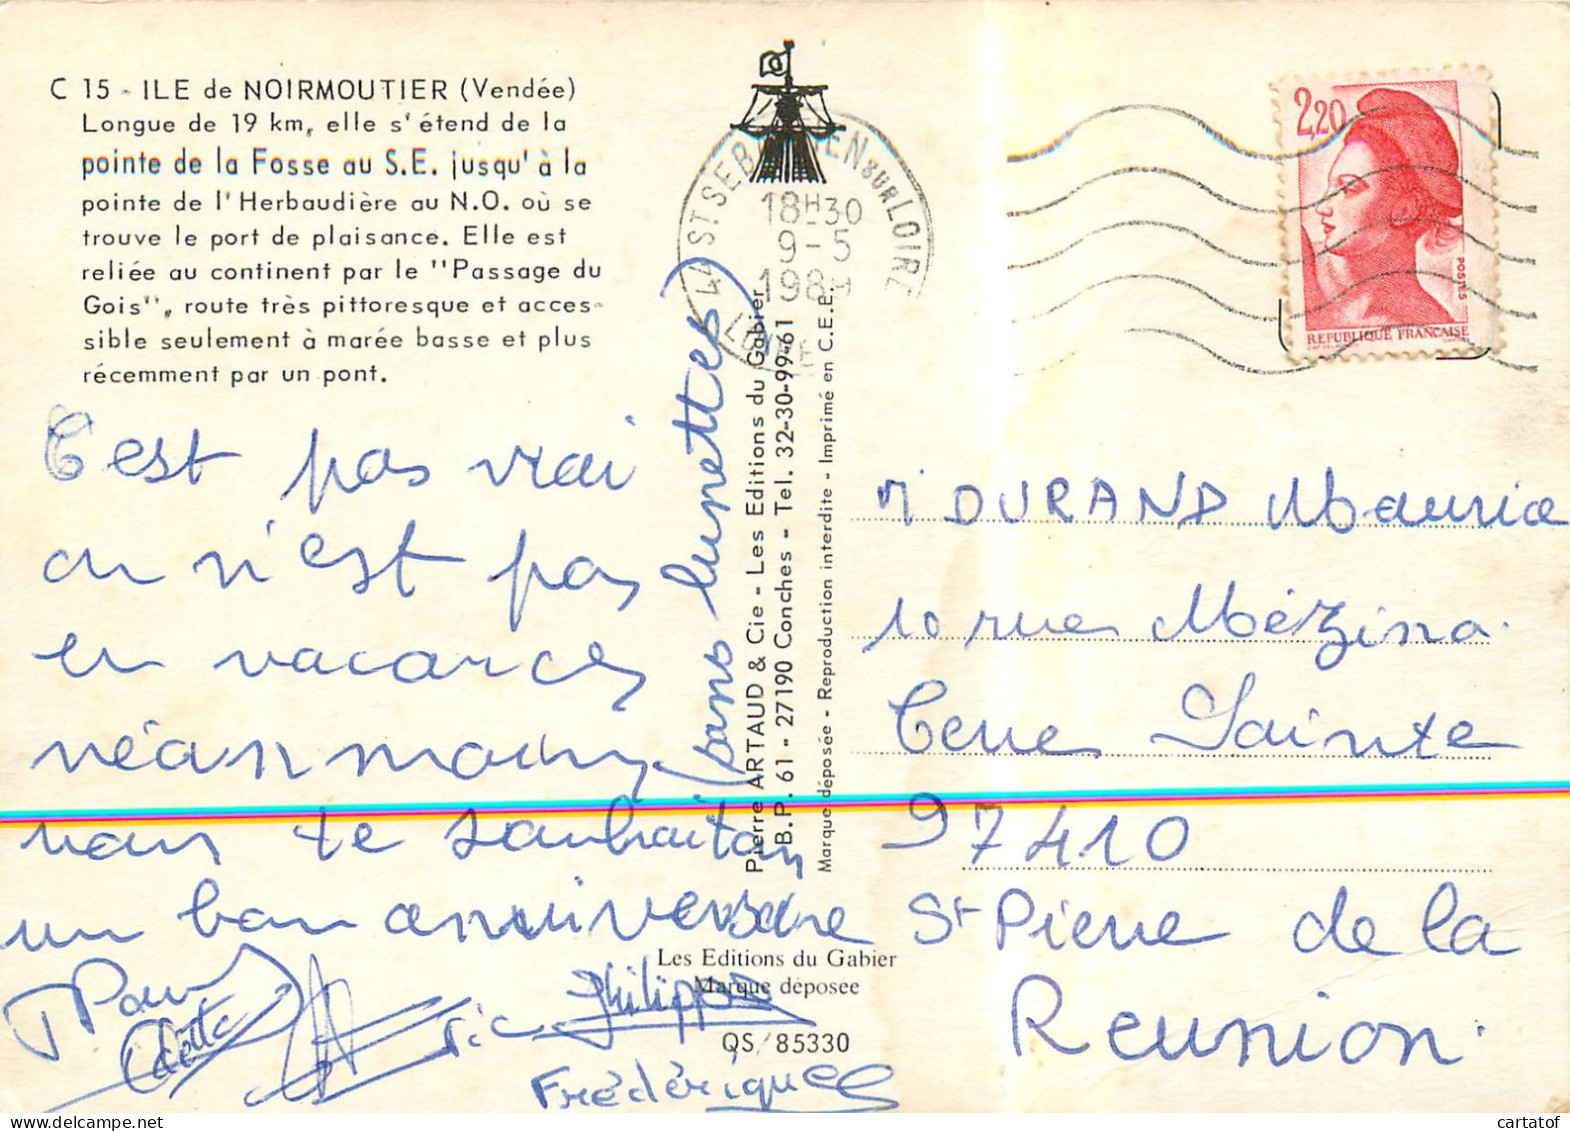 C 15 - ILE de NOIRMOUTIER (Vendée)
Longue de 19 km, elle s'étend de la
pointe de la Fosse au S.E. jusqu'à la
pointe de l'Herbaudière au N.O. où se
trouve le port de plaisance. Elle est
reliée au continent par le "Passage du
Gois", route très pittoresque et acces-
sible seulement à marée basse et plus
récemment par un pont.
C'est pas vrai
on n'est pas
en vacances
néanmoins
nous te souhaitons
un bon anniversaire
(sans lunettes)
Paul
Odette
Eric
Philippe
Frédérique
Pierre ARTAUD & Cie - Les Editions du Gabier
B.P. 61 - 27190 Conches - Tel. 32-30-99-61
Marque déposée - Reproduction interdite - Imprimé en C.E.E.
Les Editions du Gabier
Marque déposee
QS/85330
44 ST SEBASTIEN SUR LOIRE
18H30
9-5
1989
2,20
POSTES
REPUBLIQUE FRANCAISE
M DURAND Maurice
10 rue Mézino.
Terre Sainte
97410
St Pierre de la
Reunion.
cartatof